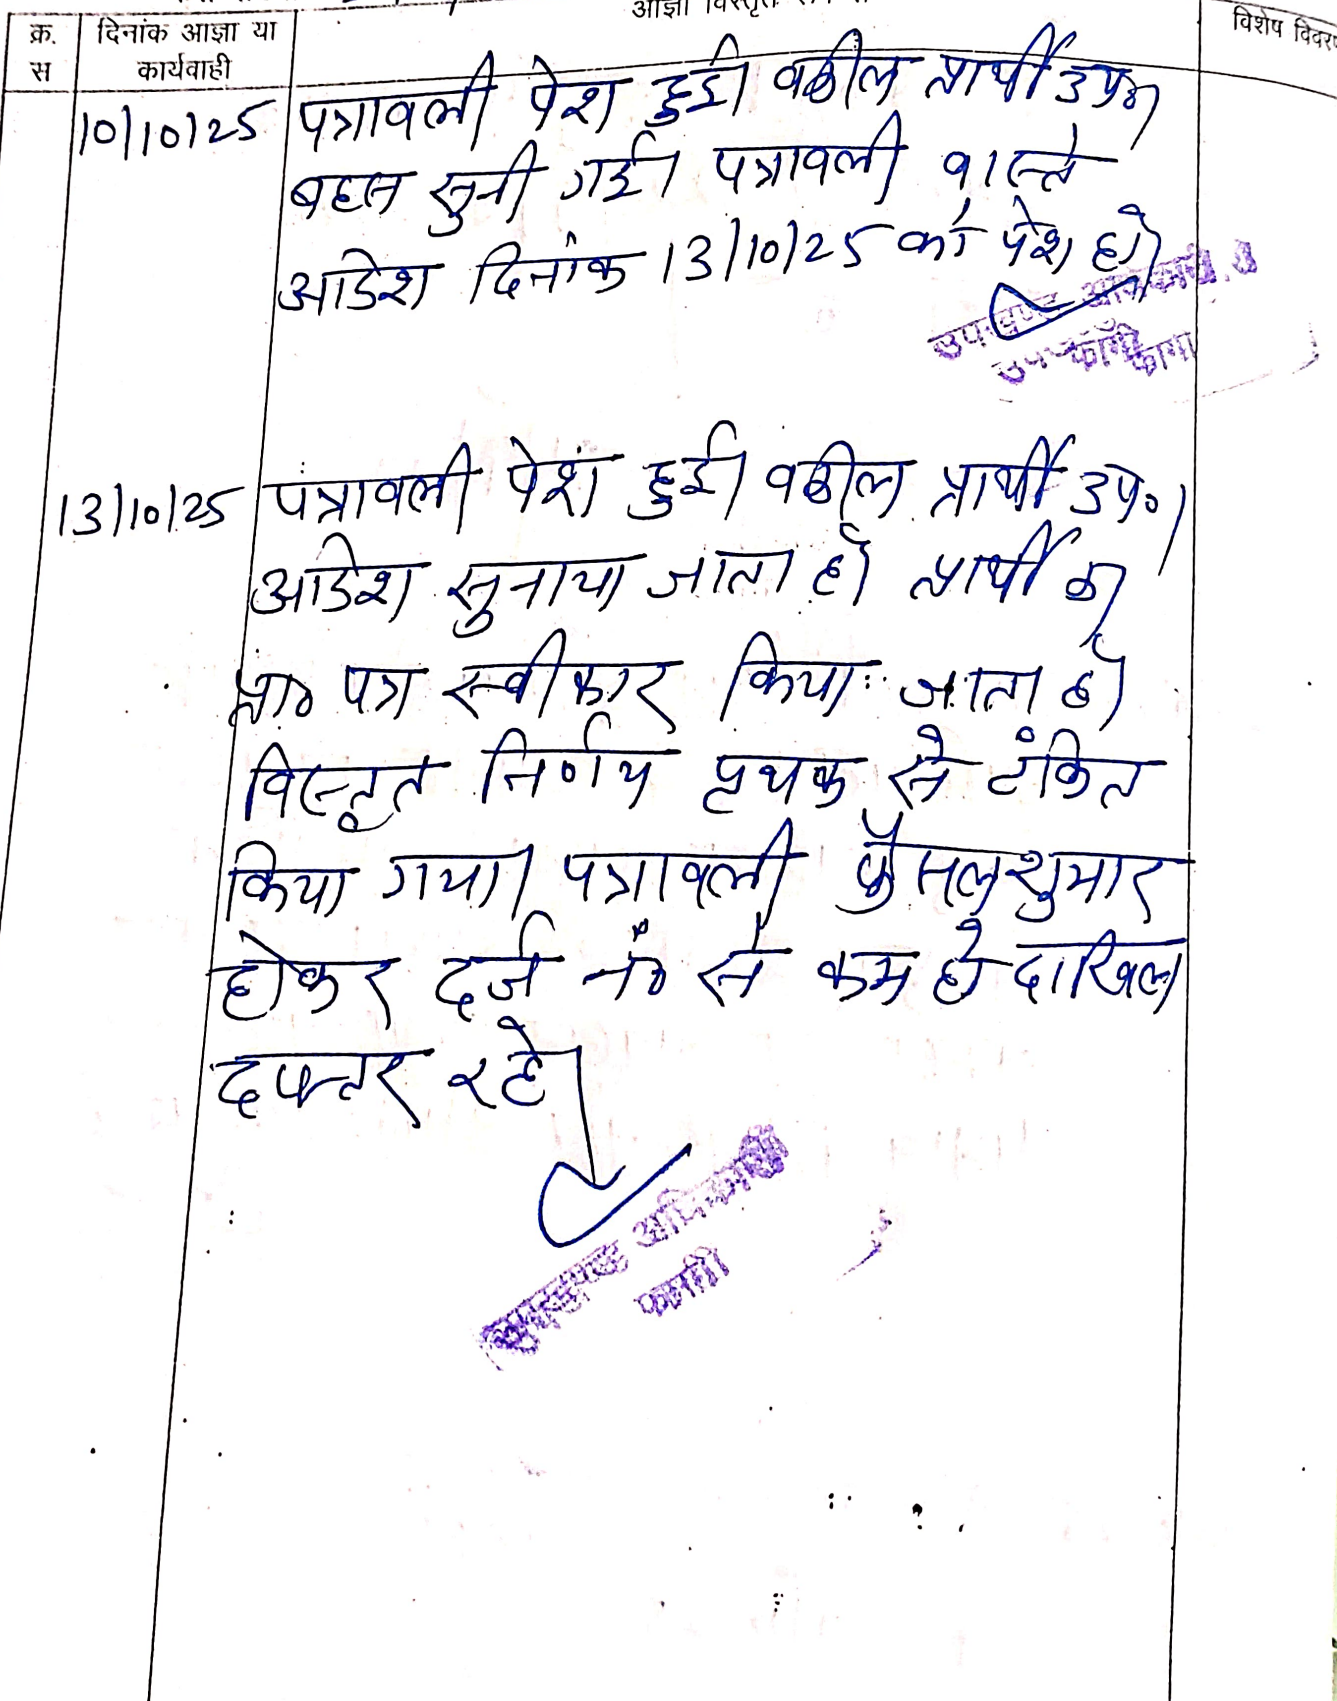 आज्ञा विस्तृत
क्र. स
दिनांक आज्ञा या कार्यवाही
विशेष विवरण
10/10/25 पत्रावली पेश हुई। वकील प्रार्थी उप०।
बहस सुनी गई। पत्रावली वास्ते
आदेश दिनांक 13/10/25 को पेश हो।
उपखण्ड अधिकारी
फागी
13/10/25 पत्रावली पेश हुई। वकील प्रार्थी उप०।
आदेश सुनाया जाता है। प्रार्थी का
प्रा० पत्र स्वीकार किया जाता है।
विस्तृत निर्णय पृथक से टंकित
किया गया। पत्रावली फैसल शुमार
होकर दर्ज नं० से कम हो दाखिल
दफ्तर रहे।
उपखण्ड अधिकारी
फागी